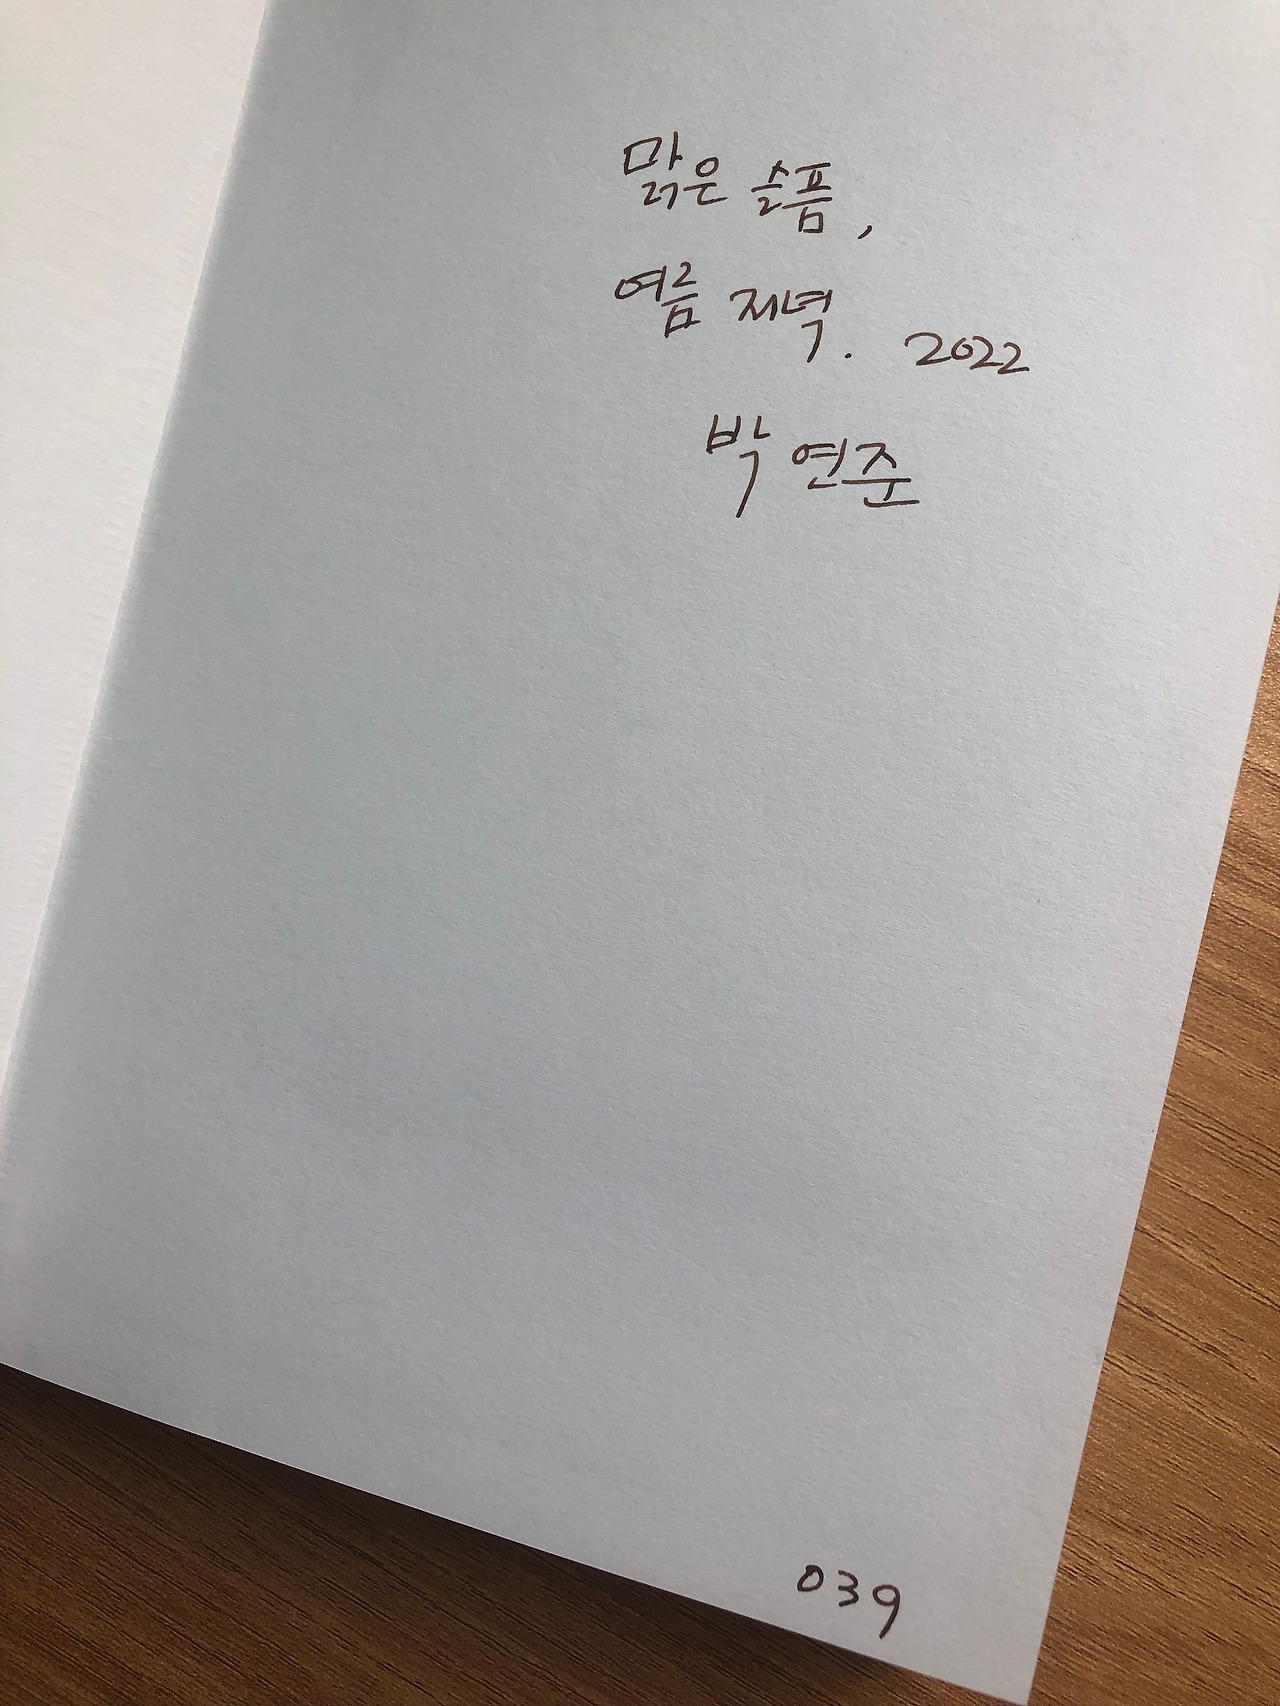 맑은 슬픔,
여름 저녁. 2022
박연준
039